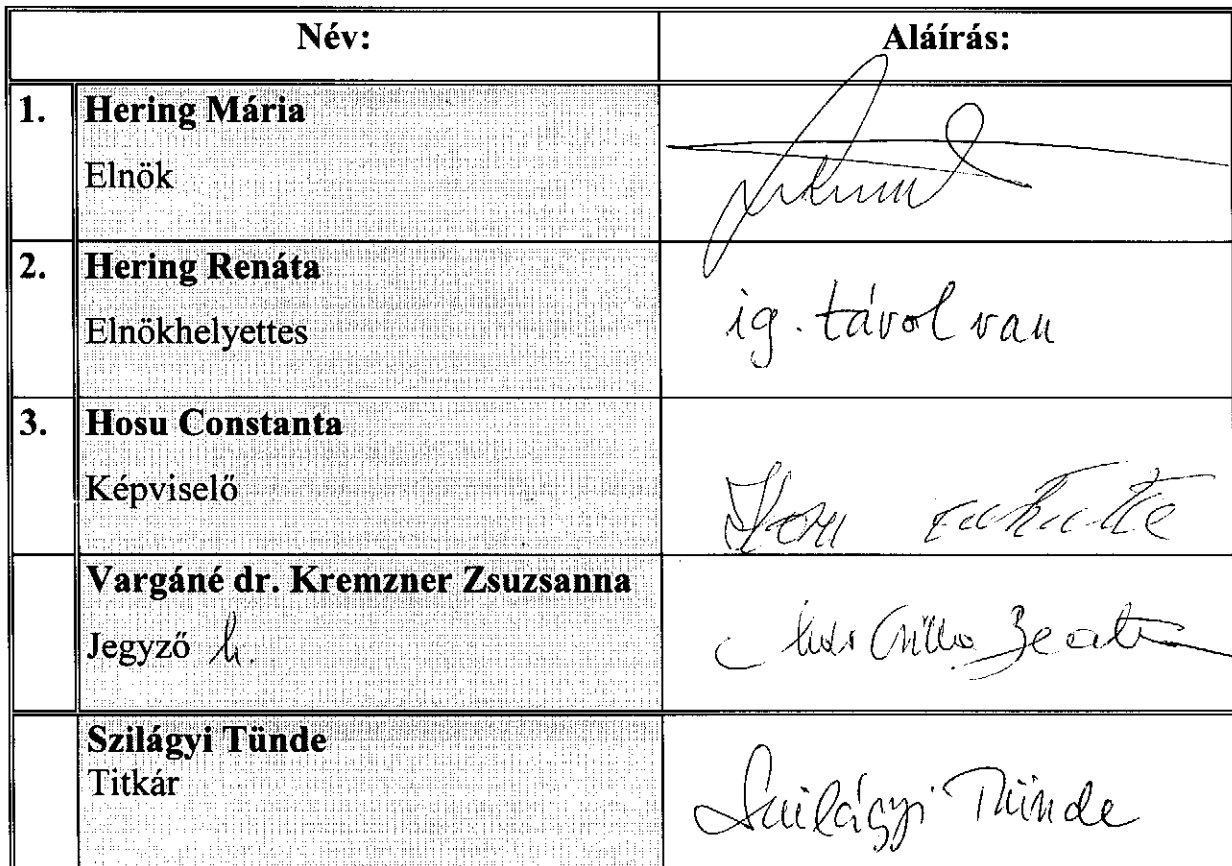 Név: Aláírás:
1. Hering Mária
Elnök
2. Hering Renáta
Elnökhelyettes
ig. távol van
3. Hosu Constanta
Képviselő
Vargáné dr. Kremzner Zsuzsanna
Jegyző h.
Szilágyi Tünde
Titkár
Szilágyi Tünde